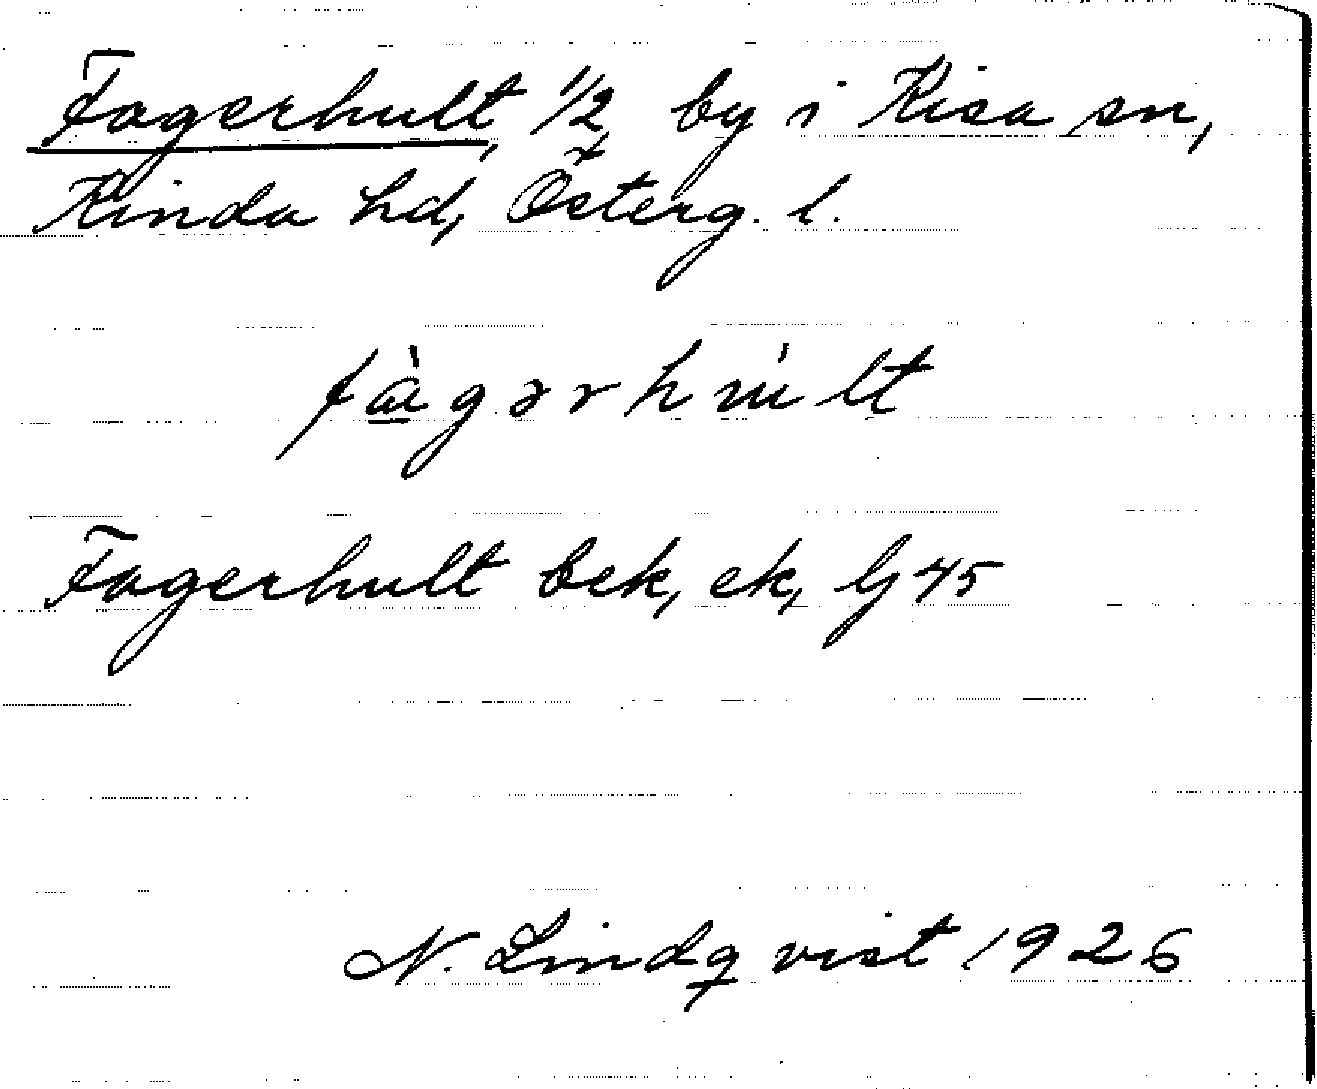 Fagerhult, 1/2, by i Kisa sn,
Kinda hd, Österg. l.
fàgərhúlt
Fagerhult bek, ek, Gj 45
N. Lindqvist 1926